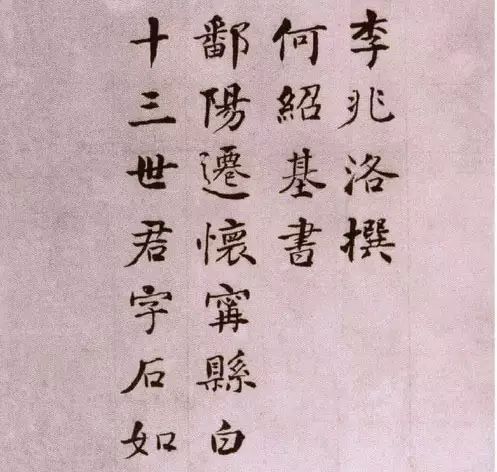 李兆洛撰
何紹基書
鄱陽遷懷寧縣白
十三世君字石如